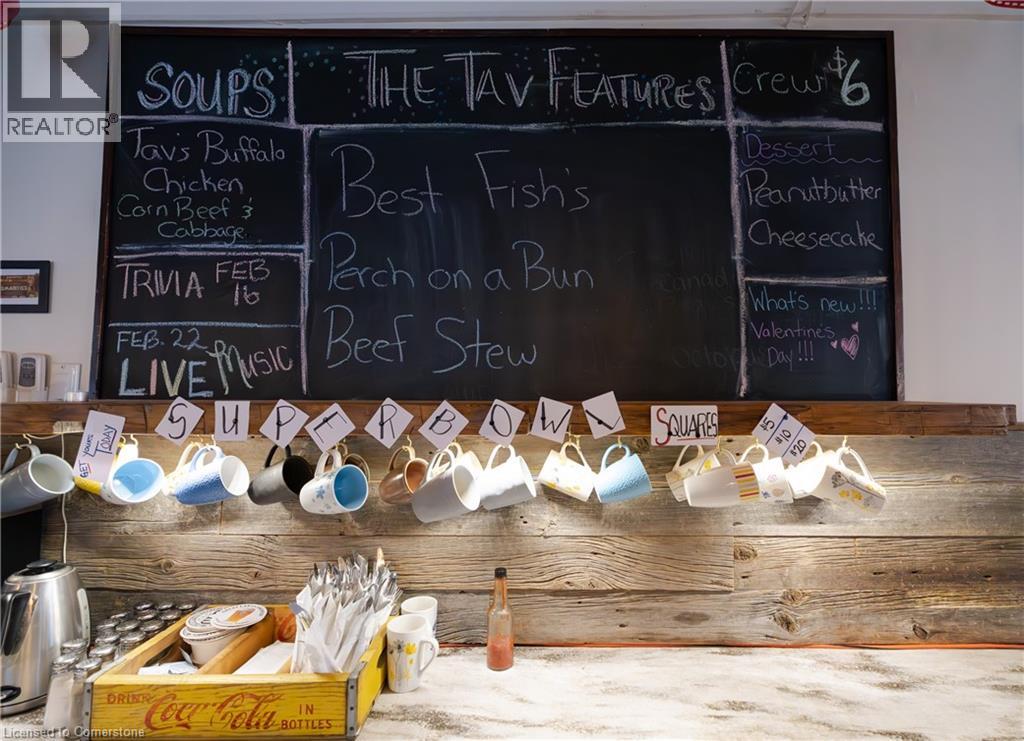 REALTOR®
SOUPS
Tav's Buffalo
Chicken
Corn Beef &
Cabbage
TRIVIA FEB
16
FEB. 22
LIVE MUSIC
THE TAV FEATURES
Best Fish's
Perch on a Bun
Beef Stew
Crew $6
Dessert
Peanutbutter
Cheesecake
What's new!!!
Valentines
Day!!!
GET YOURS
TODAY
SUPERBOWL
SQUARES
$5
$10
$20
DRINK Coca-Cola IN
BOTTLES
Licensed to Cornerstone